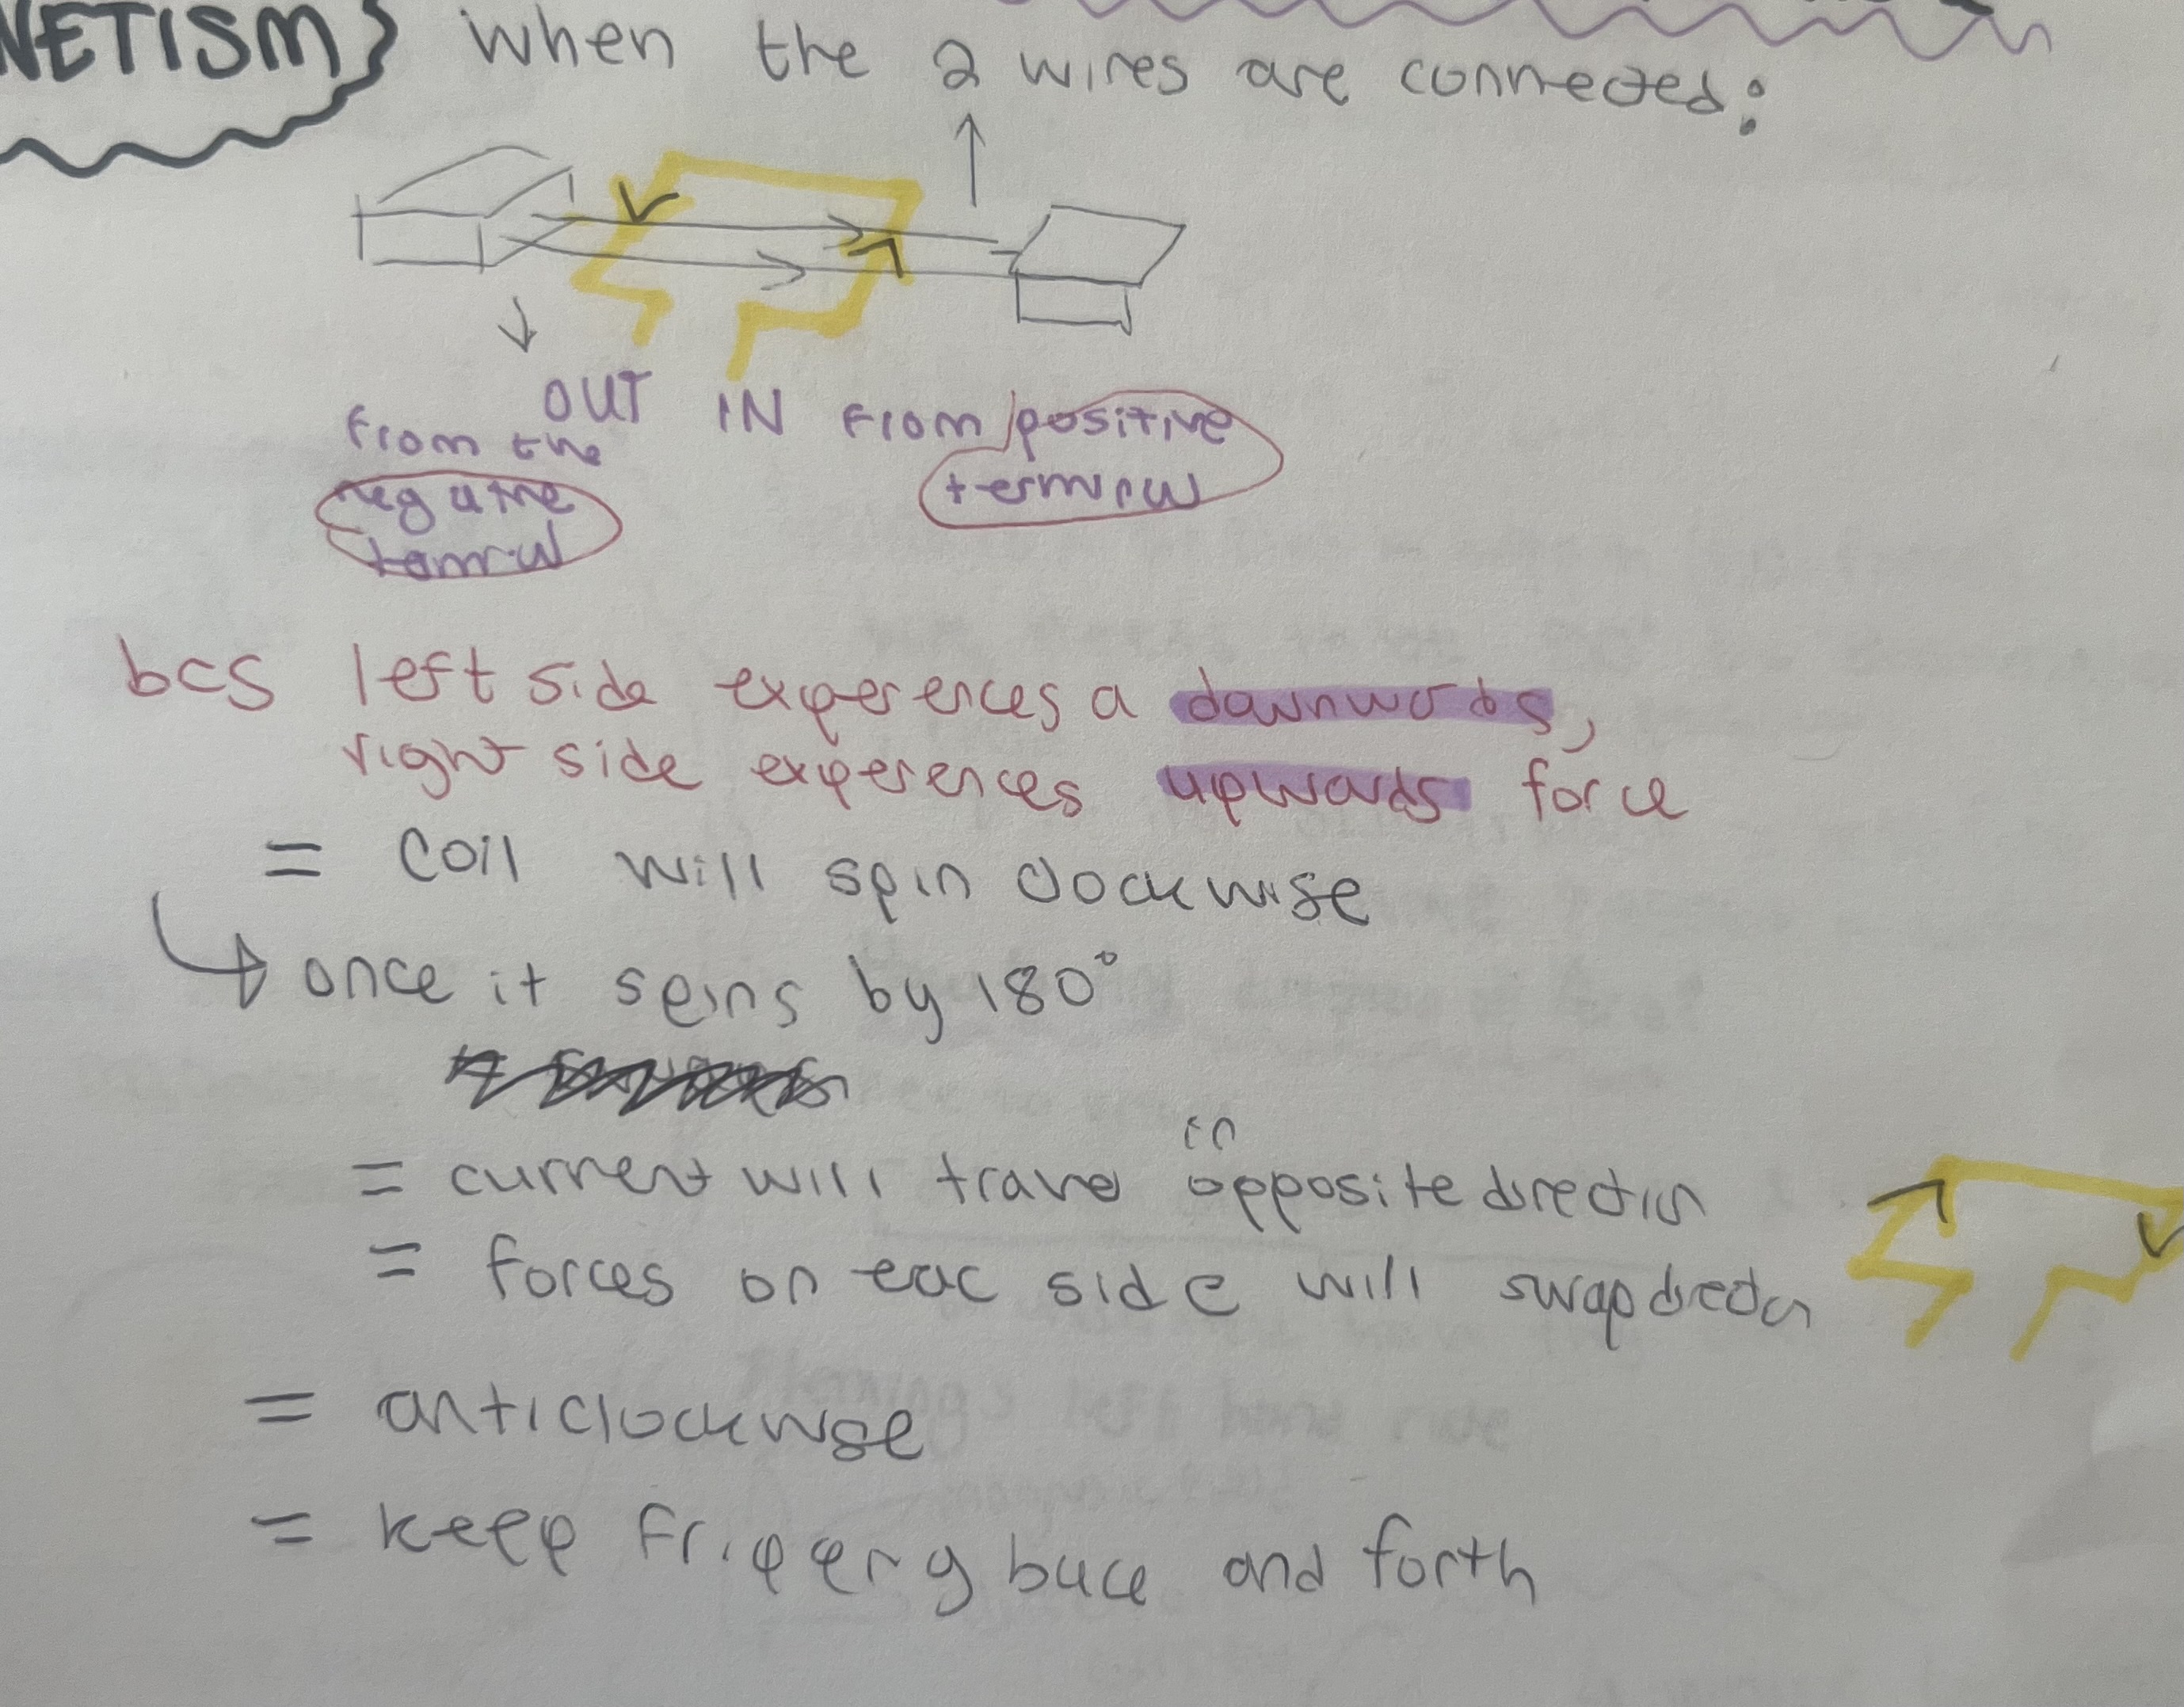 NETISM} when the 2 wires are connected:
OUT IN from positive
from the
negative
terminal
terminal
bcs left side experences a downwords,
right side experences upwards force
= coil will spin clockwise
once it spins by 180°
in
= current will trave opposite direction
= forces on eac side will swap directn
= anticlockwise
= keep back and forth